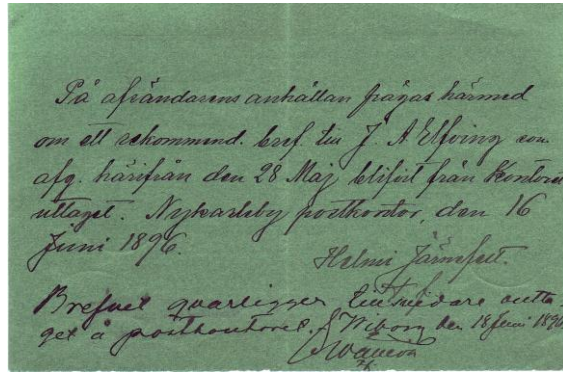 På afsändarens anhållan frågas härmed
om ett rekommend. bref till J. A Elfving som
afg. härifrån den 28 Maj blifvit från Kontoret
uttaget. Nykarleby postkontor, den 16
Juni 1896.
Helmi Järnefelt.
Brefvet qvarligger
get å postkontoret. Wiborg den 18 Juni 1896